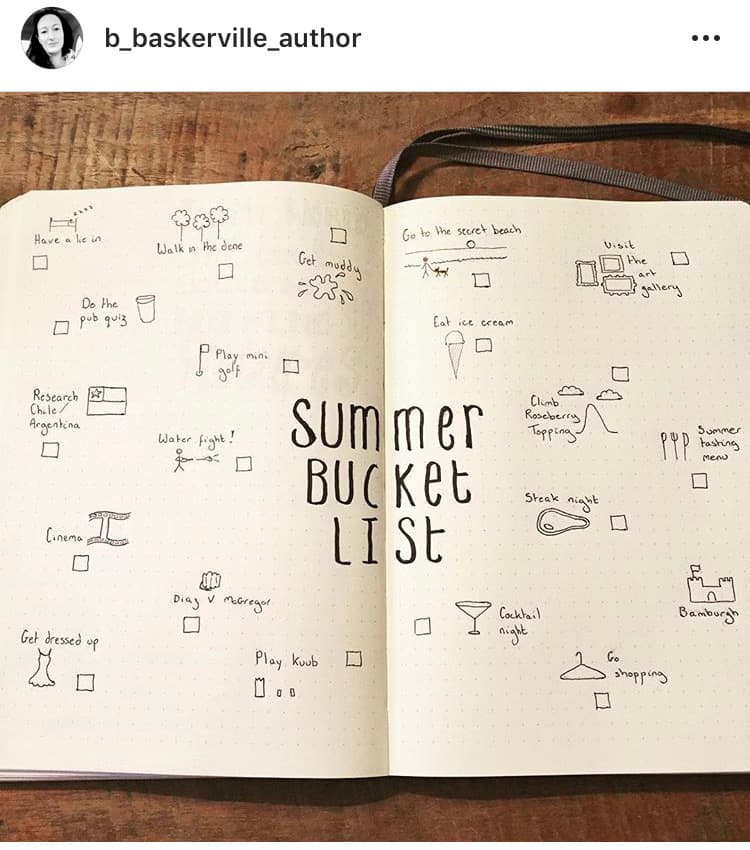 b_baskerville_author
zzzz
Have a lie in
Walk in the dene
Get muddy
Do the
pub quiz
Play mini
golf
Research
Chile/
Argentina
Water fight!
Cinema
Diaz V McGregor
Get dressed up
Play kubb
SUMMER
BUCKET
LIST
Go to the secret beach
Visit
the
art
gallery
Eat ice cream
Climb
Roseberry
Topping
Summer
tasting
menu
Steak night
Cocktail
night
Bamburgh
Go
shopping